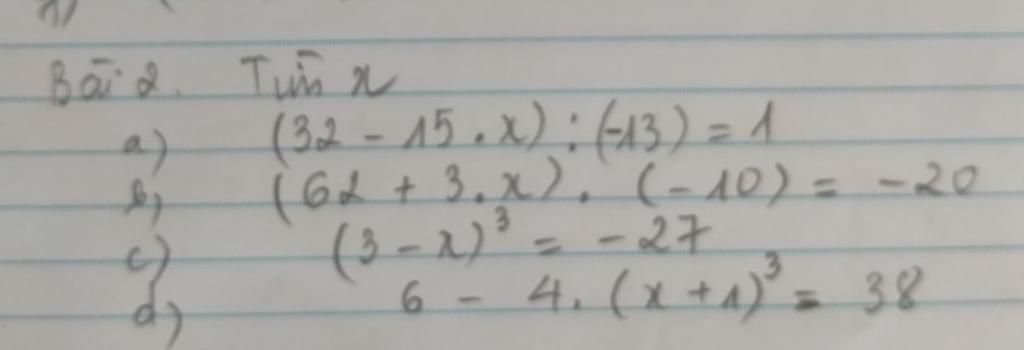 Bài 2. Tìm x
a) (32 - 15 . x) : (-13) = 1
b) (62 + 3 . x) . (-10) = -20
c) (3 - x)³ = -27
d) 6 - 4 . (x + 1)³ = 38